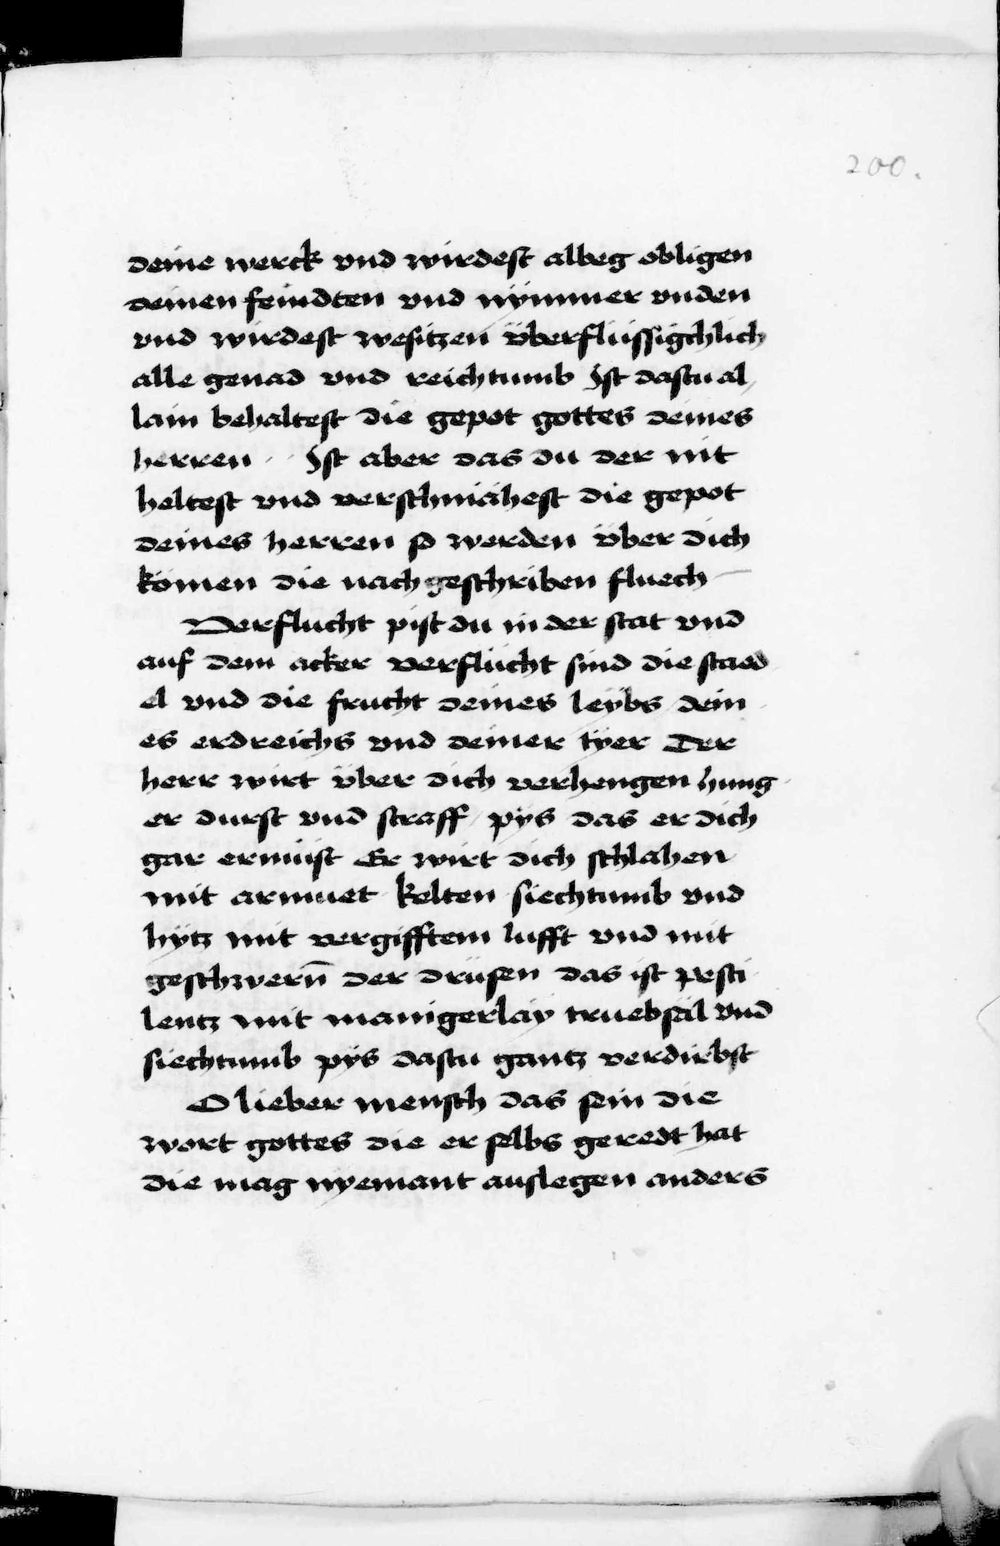 200.
deine werck vnd wirdest albeg obligen
deinen feindten vnd nӱmmer vnden
vnd wirdest wesitzen v̈berflüssigchlich
alle genad vnd reichtumb Ist dastu al
lain behaltest die gepot gottes deines
herren Ist aber das du der nit
heltest vnd verschmähest die gepot
deines herren so werden v̈ber dich
kömen die nach geschriben fluech
Verflucht pist du in der stat vnd̄
auf dem acker verflücht sind die staed
el vnd die frucht deines leӱbs dein
es erdreichs vnd deiner tӱer Der
herr wirt v̈ber dich verhengen hung
er durst vnd̄ straff pӱs das er dich
gar ermüst Er wirt dich schlahen
mit armuet kelten siechtumb vnd
hӱtz mit vergifftem lufft vnd̄ mit
geschwern̄ der drüsen das ist pesti
lentz mit manigerlaӱ truebsal vnd̄
siechtumb pӱs dastu gantz verdirbst
O lieber mensch das sein die
wort gottes die er selbs geredt hat
die mag nyemant auslegen anders